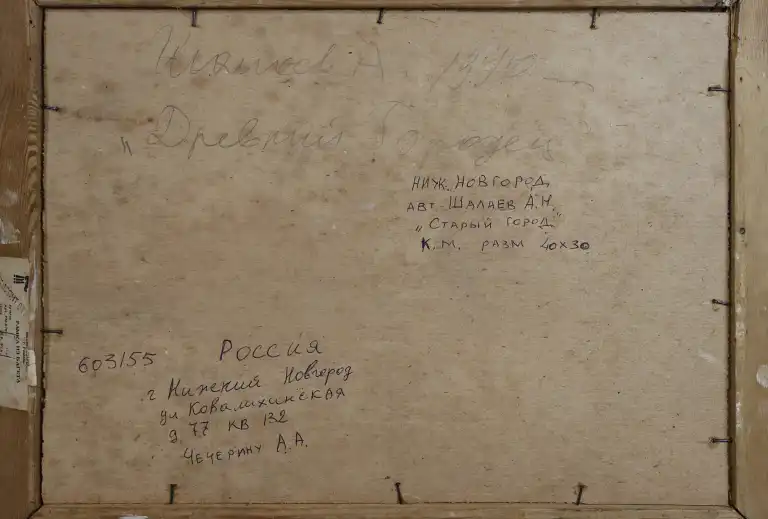 А.
„Древний Городец
НИЖ. НОВГОРОД,
АВТ-ШАЛАЕВ А.Н.
„СТАРЫЙ ГОРОД"
К.М. РАЗМ 40х30
603155 РОССИЯ
г Нижний Новгород
ул КОВАЛИХИНСКАЯ
д 77 КВ 132
ЧЕЧЕРИНУ А.А.